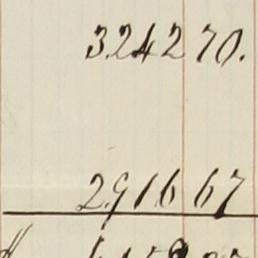 3242 70.
2916 67